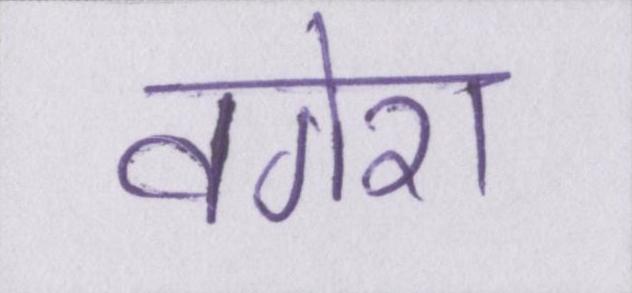 वगेरा